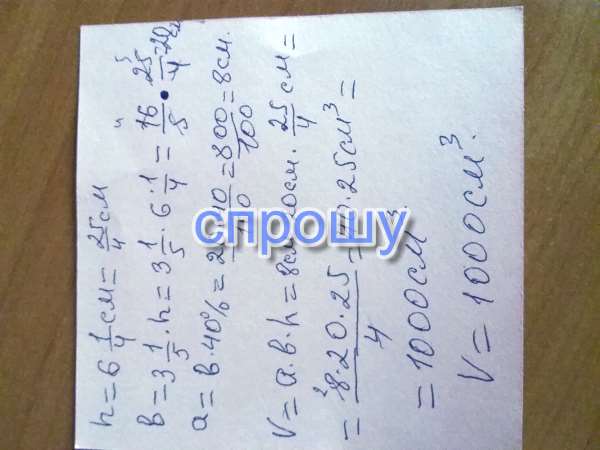 h = 6 1/4 см = 25/4 см
в = 3 1/5 · h = 3 1/5 · 6 1/4 = 16/5 · 25/4 = 20
a = в · 40% = = 800/100 = 8 см.
V = a · в · h = 8 см · 20 см · 25/4 см =
= 8 · 20 · 25/4 = · 25 см³ =
= 1000 см³.
V = 1000 см³.
спрошу